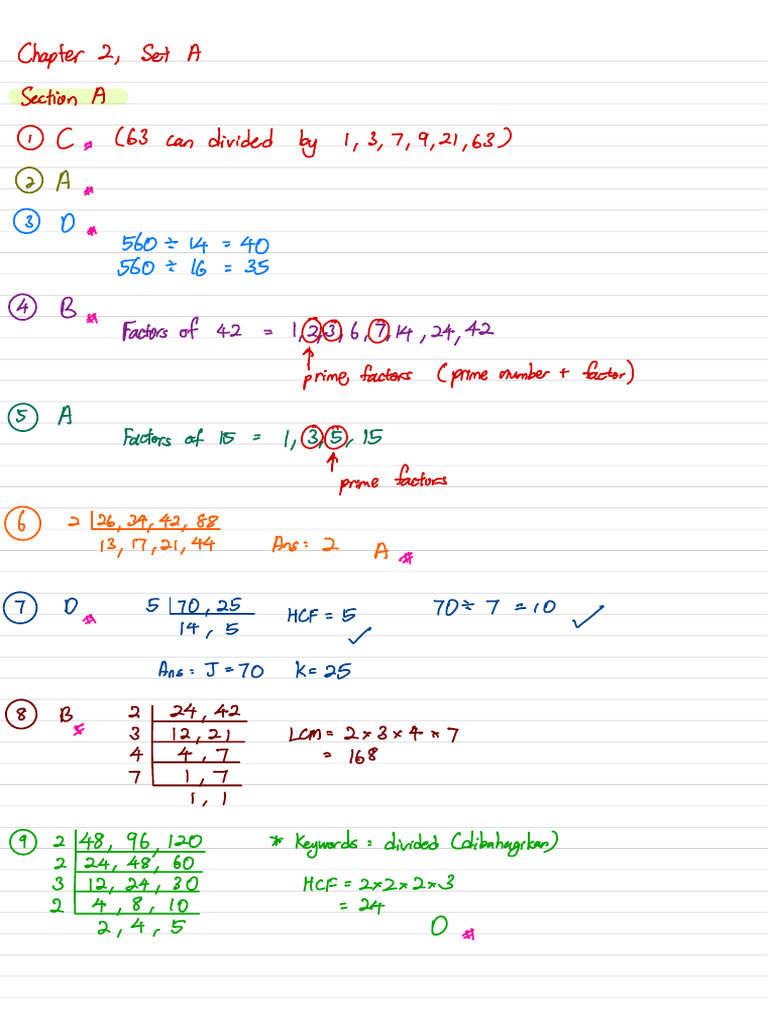 Chapter 2, Set A
Section A
① C * (63 can divided by 1, 3, 7, 9, 21, 63)
② A *
③ D *
560 ÷ 14 = 40
560 ÷ 16 = 35
④ B *
Factors of 42 = 1, 2, 3, 6, 7, 14, 24, 42
↑
prime factors (prime number + factor)
⑤ A
Factors of 15 = 1, 3, 5, 15
↑
prime factors
⑥ 2 | 26, 34, 42, 88
13, 17, 21, 44 Ans: 2 A *
⑦ D * 5 | 70, 25 HCF = 5 ✓ 70 ÷ 7 = 10 ✓
14, 5
Ans: J = 70 K = 25
⑧ B * 2 | 24, 42
3 | 12, 21 LCM = 2 × 3 × 4 × 7
4 | 4, 7 = 168
7 | 1, 7
1, 1
⑨ 2 | 48, 96, 120 * Keywords: divided (dibahagikan)
2 | 24, 48, 60
3 | 12, 24, 30 HCF = 2×2×2×3
2 | 4, 8, 10 = 24
2, 4, 5 D *